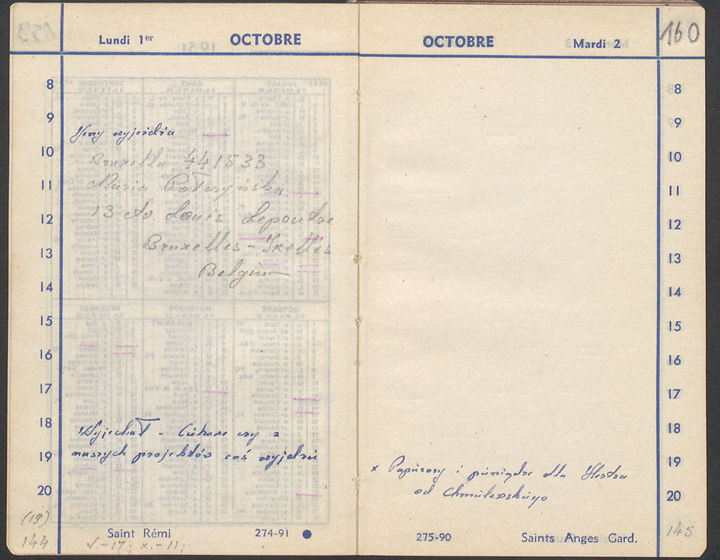 Lundi 1er OCTOBRE
8
9
Jerzy wyjeżdża
10
Bruxelles 441533
11
Maria
12
13 Av. Louis Lepoutre
13
Bruxelles - Ixelles
Belgium
14
15
16
17
18
Wyjechał - Ciekawe czy z
19
naszych projektów coś wyjdzie
20
(13)
144
Saint Rémi 274-91
V.-17; X.-11;
OCTOBRE Mardi 2
160
8
9
10
11
12
13
14
15
16
17
18
19
x Papierosy i pieniądze dla
20
od Chmielewskiego
275-90 Saints Anges Gard.
145